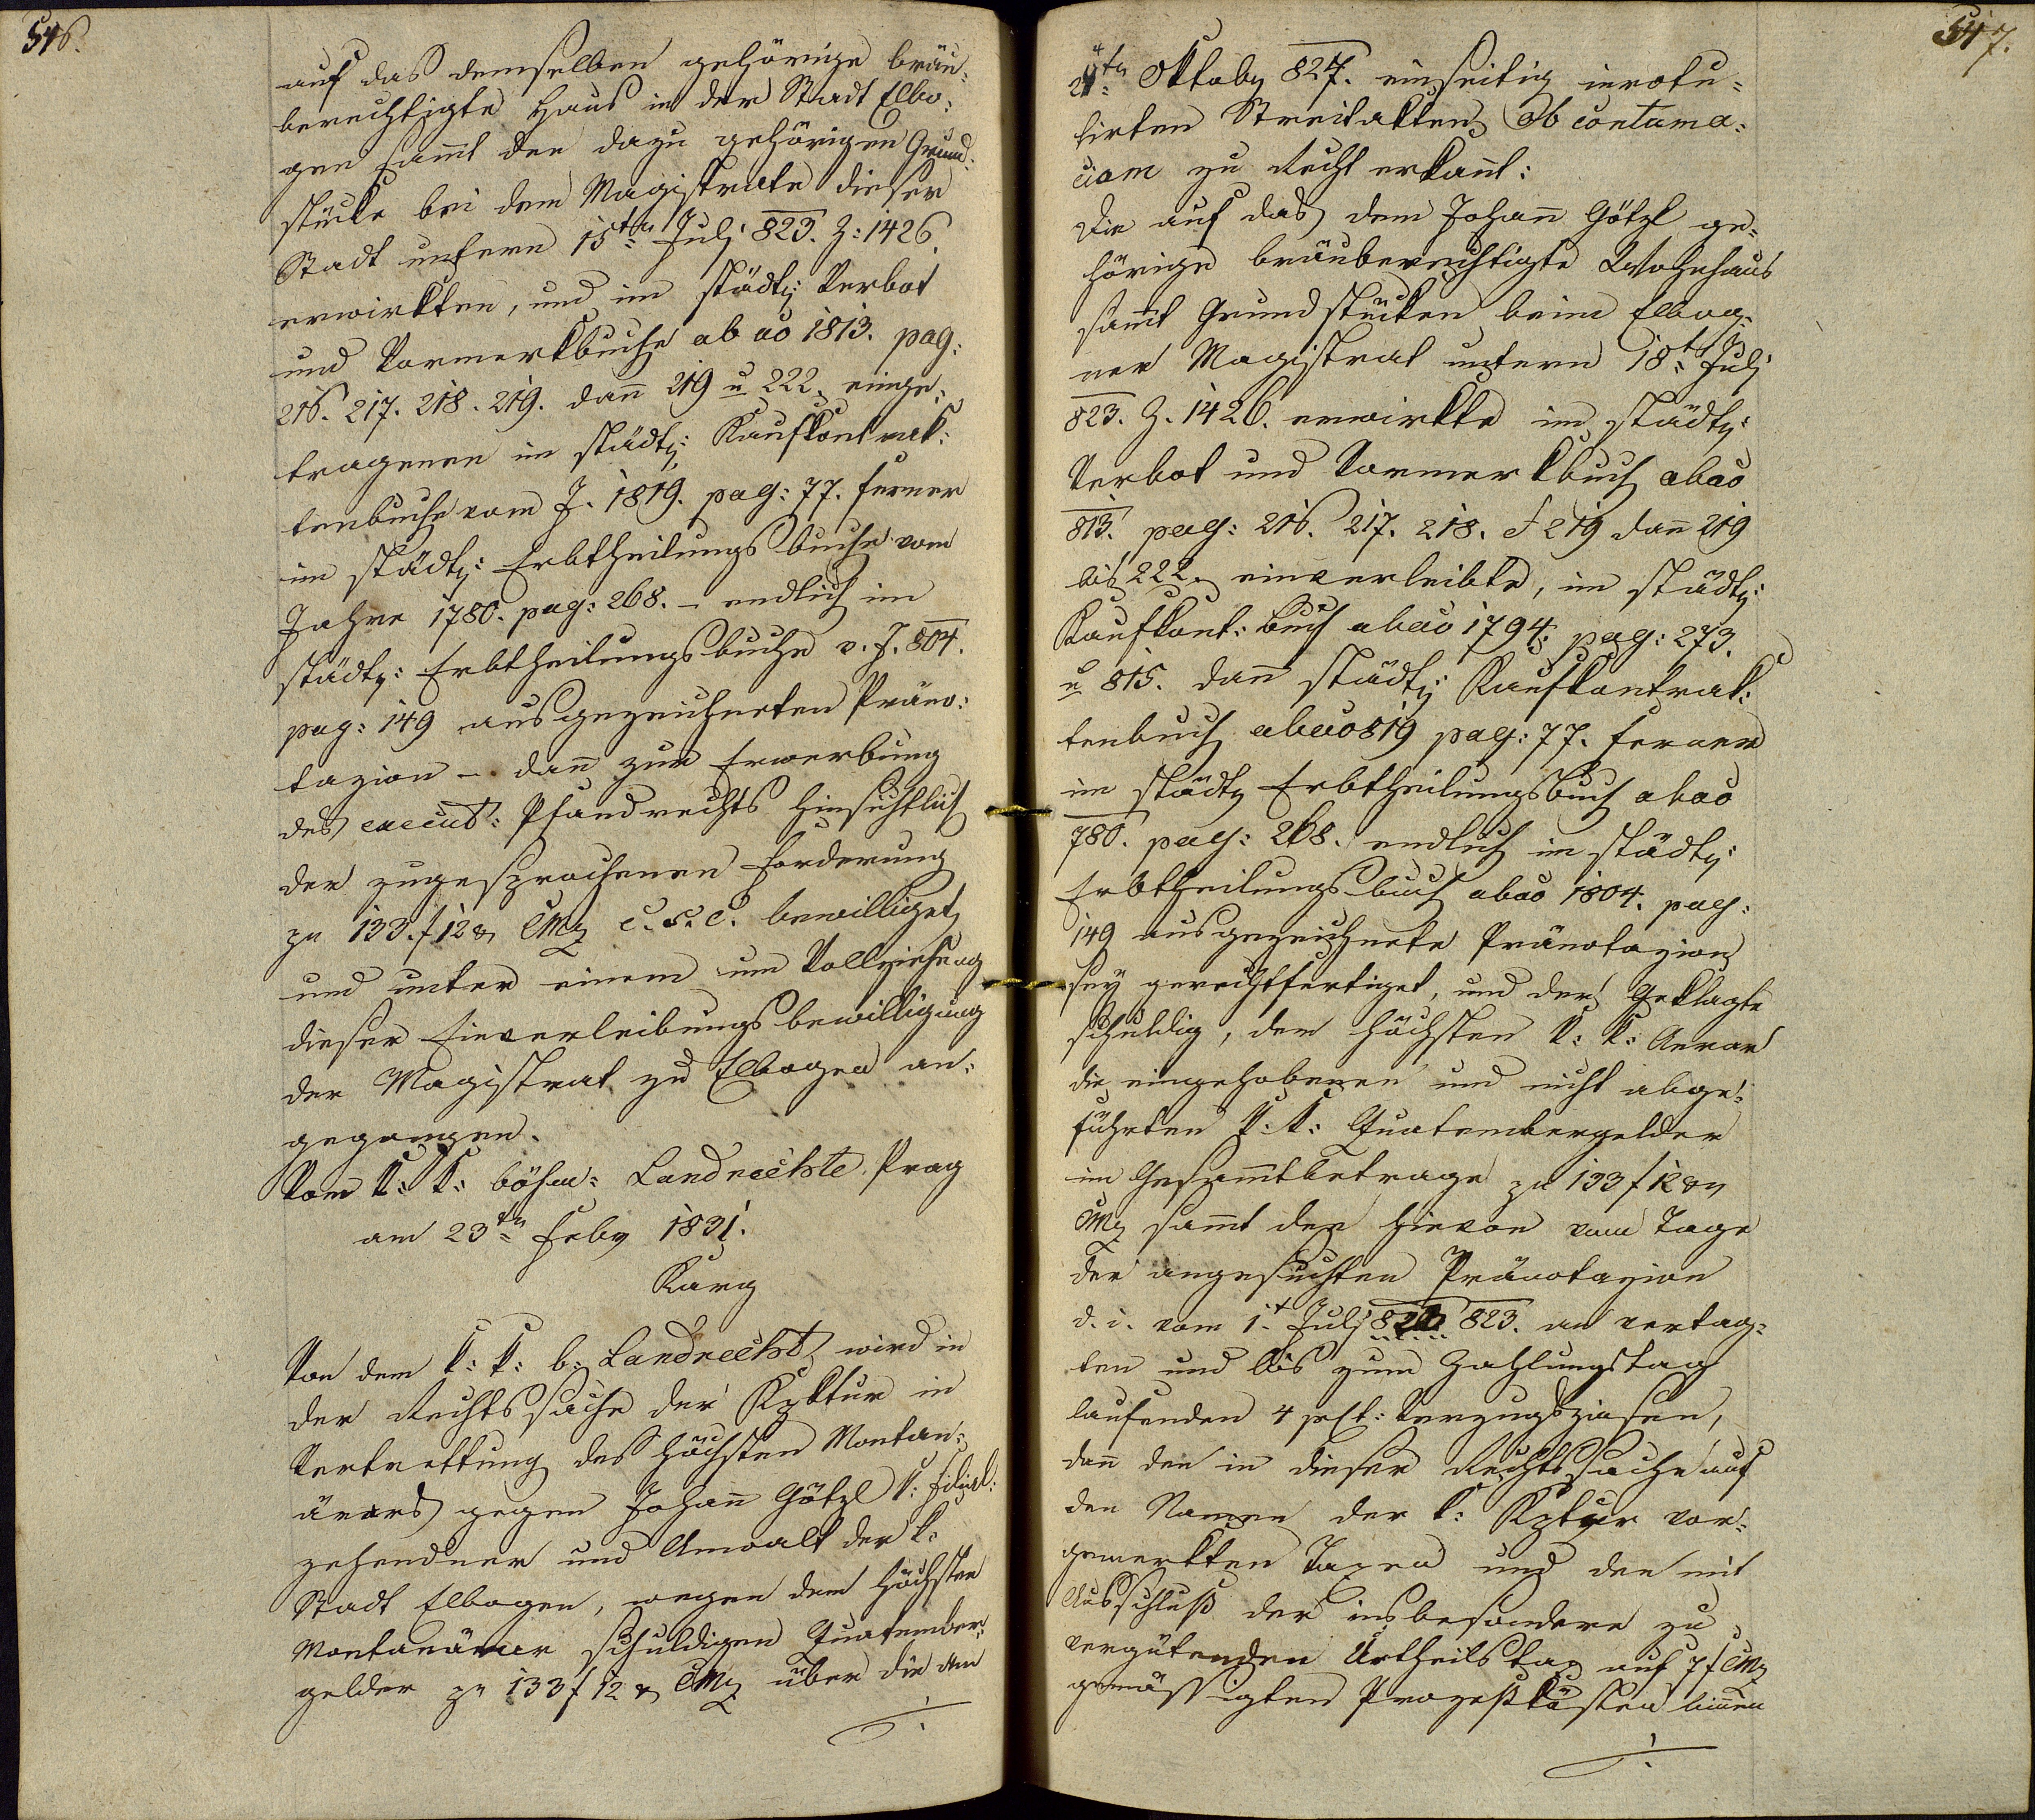 546.
auf das demselben gehörige bräu-
berechtigte Haus in der Stadt Elbo-
gen samt den dazu gehörigen Grund-
stücke bei dem Magistrate dieser
Stadt unterm 15ten Julj 823. Z: 1426.
erwirkten, und im städty: Verbot
und Vormerkbuche ab ao 1813. pag:
216. 217. 218. 219. dann 219 u 222. einge-
tragenen im städty: Kaufkontrak-
tenbuche vom J. 1819. pag: 77. ferner
im städty: Erbtheilungsbuche vom
Jahre 1780. pag: 268. – endlich im
städty: Erbtheilungsbuche v. J. 804.
pag: 149 ausgezeichneten Präno-
tazion – dann zur Erwerbung
des execut: Pfandrechts hinsichtlich
der zugesprochenen Forderung
zu 133. f 12 x CMz c. s. c. bewilliget,
und unter einem um Vollziehung
dieser Einverleibungsbewilligung
der Magistrat zu Elbogen an-
gegangen.
Vom k: k: böhm: Landrechte Prag
am 23ten Feby 1831.
Karg
Von dem k: k: b: Landrecht wird in
der Rechtssache der Kzktur in
Vertrettung des höchsten Montan-
ärars gegen Johann Götzl k: Filial-
zehendner und Anwalt der k:
Stadt Elbogen, wegen dem höchsten
Montanärar schuldigen Quatember-
gelder zu 133 f 12 x CMz über die am
547.
24ten Oktober 827. einseitig inrotu-
lirten Streitakten Ob contuma-
ciam zu Recht erkannt:
Die auf das dem Johann Götzl ge-
hörige bräuberechtigte Wohnhaus
sammt Grundstücken beim Elbog-
ner Magistrat unterm 18t Julj
823. Z. 1426. erwirkte im städty:
Verbot und Vormerkbuch abao
813. pag: 216. 217. 218. & 219 dann 219
bis 222. einverleibte, im städty:
Kaufkont: Buch abao 1794. pag: 273.
u 815. dann städty: Kaufkontrak-
tenbuch abao 819 pag: 77. ferner
im städty Erbtheilungsbuch abao
780. pag: 268. endlich im städty:
Erbtheilungsbuch abao 1804. pag:
149 ausgezeichnete Pränotazion
sey gerechtfertiget, und der Geklagte
schuldig, dem höchsten k: k: Aerar
die eingehobenen und nicht abge-
führten k: k: Quatembergelder
im Gesammtbetrage zu 133 f 12 xr
CMz sammt den hievon vom Tage
der angesuchten Pränotazion
d. i. vom 1t Julj 823. an vertag-
ten und bis zum Zahlungstag
laufenden 4 prCt: Verzugszinsen,
dann den in dieser Rechtssache auf
den Namen der k: Kzktur vor-
gemerkten Taxen und den mit
Ausschluß der insbesondere zu
vergütenden Urtheilstax auf 7 f CMz
gemässigten Prozeßkösten binnen